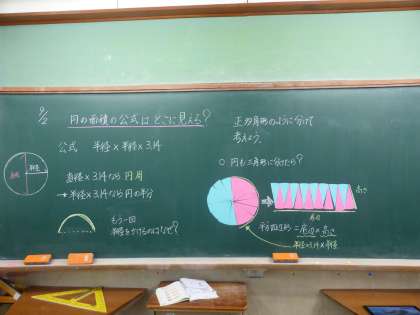 9/2
円の面積の公式は どこに見える?
公式 半径×半径×3.14
直径
半径
直径×3.14なら 円周
→半径×3.14なら 円の半分
もう一回
半径をかけるのはなぜ?
正多角形のように分けて
考えよう。
○ 円も三角形に分けたら?
高さ
底辺
平行四辺形=底辺×高さ
半径×3.14×半径